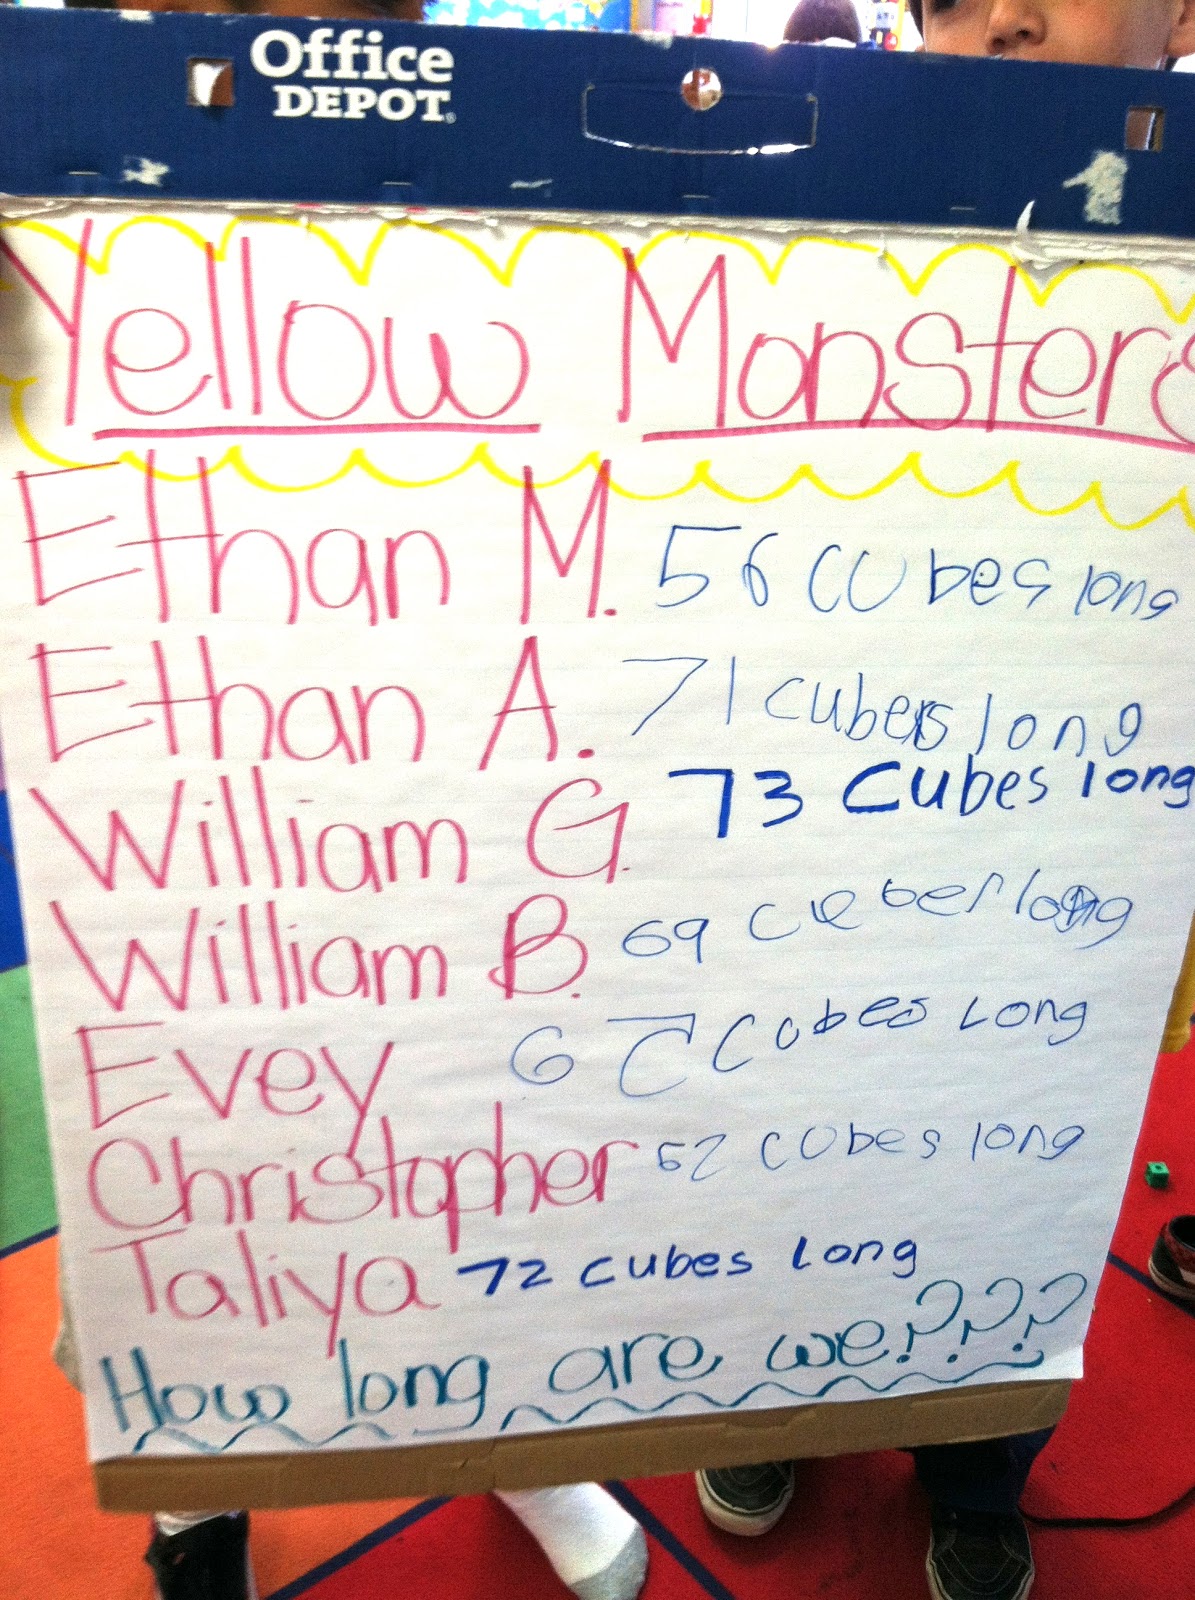 Office
DEPOT
Yellow Monsters
Ethan M. 56 cubes long
Ethan A. 71 cubers long
William G. 73 cubes long
William B. 69 cuber long
Evey 6 cubes long
Christopher 62 cubes long
Taliya 72 cubes long
How long are we???